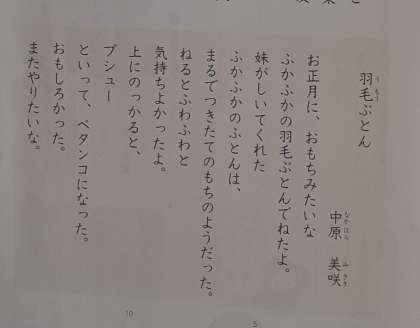 羽毛ぶとん
中原 美咲
お正月に、おもちみたいな
ふかふかの羽毛ぶとんでねたよ。
妹がしいてくれた
ふかふかのふとんは、
まるでつきたてのもちのようだった。
ねるとふわふわと
気持ちよかったよ。
上にのっかると、
プシュー
といって、ペタンコになった。
おもしろかった。
またやりたいな。
5
10